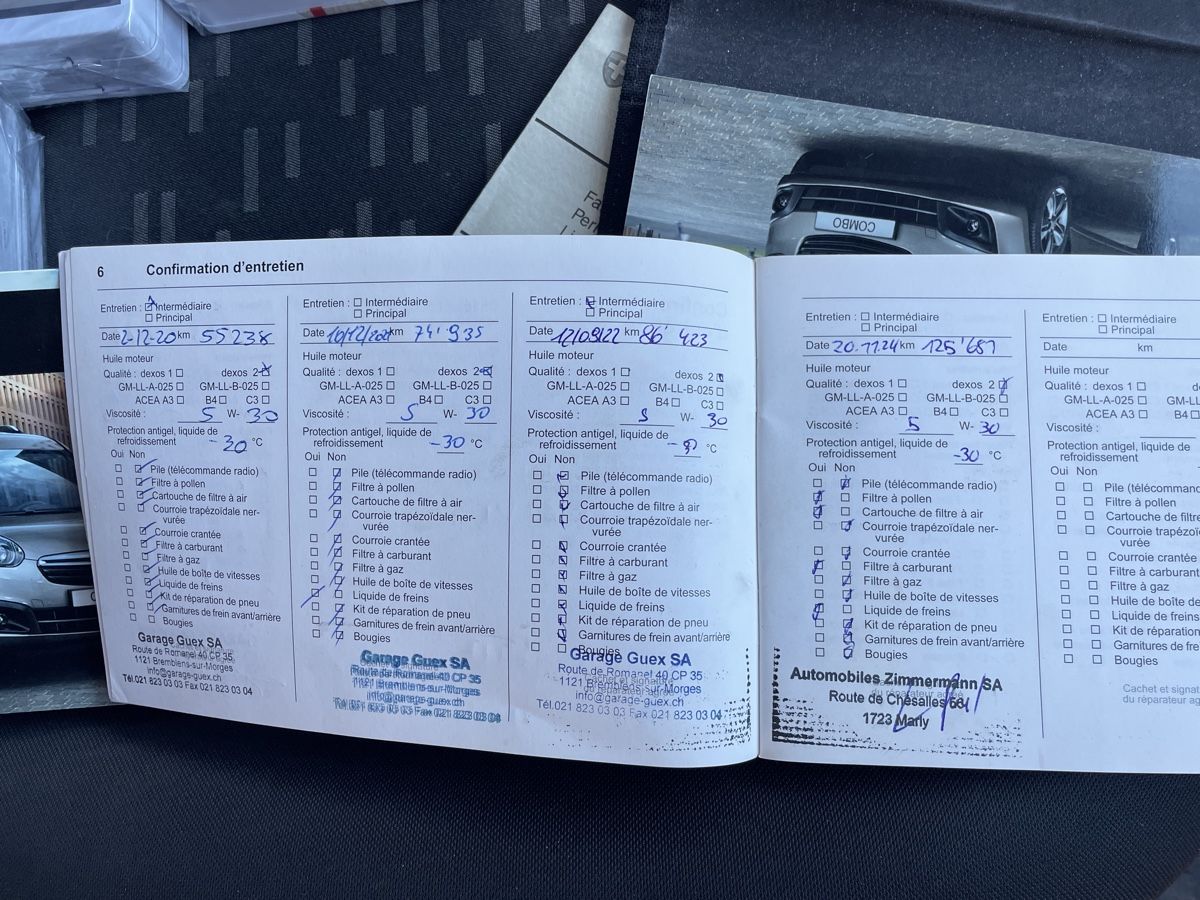 Fa
Per
COMBO
6 Confirmation d'entretien
Entretien : Intermédiaire
Principal
Date 2-12-20 km 55238
Huile moteur
Qualité : dexos 1 dexos 2
GM-LL-A-025 GM-LL-B-025
ACEA A3 B4 C3
Viscosité 5 W- 30
Protection antigel, liquide de
refroidissement -30 °C
Oui Non
Pile (télécommande radio)
Filtre à pollen
Cartouche de filtre à air
Courroie trapézoïdale ner-
vurée
Courroie crantée
Filtre à carburant
Filtre à gaz
Huile de boîte de vitesses
Liquide de freins
Kit de réparation de pneu
Garnitures de frein avant/arrière
Bougies
Garage Guex SA
Route de Romanel 40 CP 35
1121 Bremblens-sur-Morges
info@garage-guex.ch
Tél.021 823 03 03 Fax 021 823 03 04
Entretien : Intermédiaire
Principal
Date 10/12/2021 km 74'935
Huile moteur
Qualité : dexos 1 dexos 2
GM-LL-A-025 GM-LL-B-025
ACEA A3 B4 C3
Viscosité 5 W- 30
Protection antigel, liquide de
refroidissement -30 °C
Oui Non
Pile (télécommande radio)
Filtre à pollen
Cartouche de filtre à air
Courroie trapézoïdale ner-
vurée
Courroie crantée
Filtre à carburant
Filtre à gaz
Huile de boîte de vitesses
Liquide de freins
Kit de réparation de pneu
Garnitures de frein avant/arrière
Bougies
Garage Guex SA
Route de Romanel 40 CP 35
1121 Bremblens-sur-Morges
info@garage-guex.ch
Tél.021 823 03 03 Fax 021 823 03 04
Entretien : Intermédiaire
Principal
Date 12/09/22 km 86'423
Huile moteur
Qualité : dexos 1 dexos 2
GM-LL-A-025 GM-LL-B-025
ACEA A3 B4 C3
Viscosité 5 W- 30
Protection antigel, liquide de
refroidissement °C
Oui Non
Pile (télécommande radio)
Filtre à pollen
Cartouche de filtre à air
Courroie trapézoïdale ner-
vurée
Courroie crantée
Filtre à carburant
Filtre à gaz
Huile de boîte de vitesses
Liquide de freins
Kit de réparation de pneu
Garnitures de frein avant/arrière
Bougies
Garage Guex SA
Route de Romanel 40 CP 35
1121 Bremblens-sur-Morges
info@garage-guex.ch
Tél.021 823 03 03 Fax 021 823 03 04
Entretien : Intermédiaire
Principal
Date 20.11.24 km 125'687
Huile moteur
Qualité : dexos 1 dexos 2
GM-LL-A-025 GM-LL-B-025
ACEA A3 B4 C3
Viscosité 5 W- 30
Protection antigel, liquide de
refroidissement -30 °C
Oui Non
Pile (télécommande radio)
Filtre à pollen
Cartouche de filtre à air
Courroie trapézoïdale ner-
vurée
Courroie crantée
Filtre à carburant
Filtre à gaz
Huile de boîte de vitesses
Liquide de freins
Kit de réparation de pneu
Garnitures de frein avant/arrière
Bougies
Automobiles Zimmermann SA
Route de Chésalles
1723 Marly
Entretien : Intermédiaire
Principal
Date km
Huile moteur
Qualité : dexos 1
GM-LL-A-025 GM-LL
ACEA A3 B4
Viscosité :
Protection antigel, liquide de
refroidissement
Oui Non
Pile (télécommand
Filtre à pollen
Cartouche de filtre
Courroie trapézo
vurée
Courroie crantée
Filtre à carburant
Filtre à gaz
Huile de boîte de
Liquide de freins
Kit de réparation
Garnitures de frein
Bougies
Cachet et signat
du réparateur ag